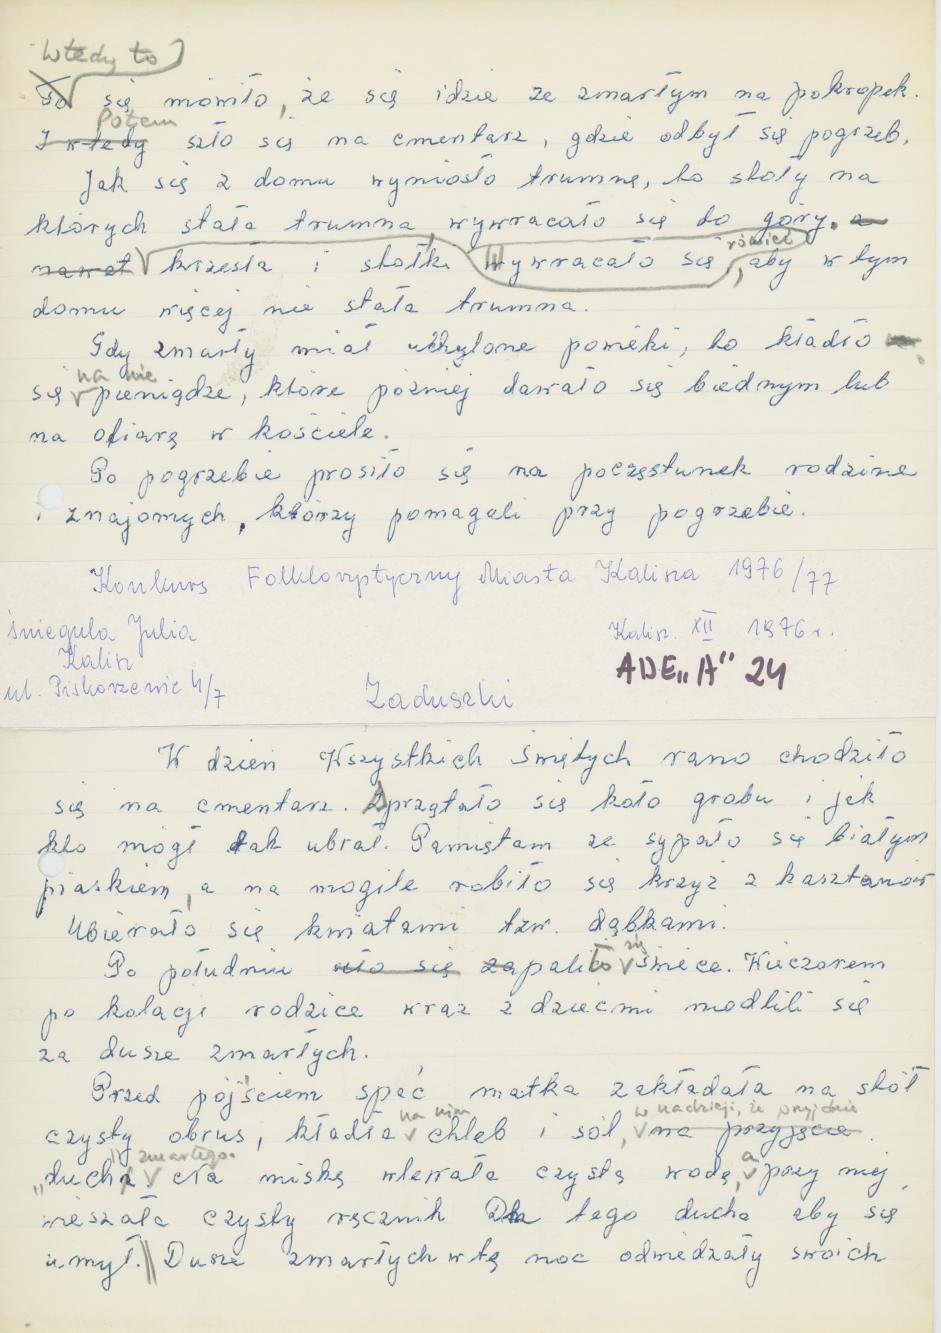 Wtedy to
To się mówiło, że się idzie ze zmarłym na pokropek.
Potem
I wtedy szło się na cmentarz, gdzie odbył się pogrzeb.
Jak się z domu wyniosło trumnę, to stoły na
których stała trumna, wywracało się do góry. a
również
nawet krzesła i stołki wywracało się, aby w tym
domu więcej nie stała trumna.
Gdy zmarły miał uchylone powieki, to kładło
na nie
się pieniądze, które później dawało się biednym lub
na ofiarę w kościele.
Po pogrzebie prosiło się na poczęstunek rodzinę
i znajomych, którzy pomagali przy pogrzebie.
Konkurs Folklorystyczny Miasta Kalisza 1976/77
Śniegula Julia
Kalisz. XII 1976 r.
Kalisz
ADE „A" 24
ul. Piskorzewie 4/7
Zaduszki
W dzień Wszystkich Świętych rano chodziło
się na cmentarz. Sprzątało się koło grobu i jak
kto mógł tak ubrał. Pamiętam ze sypało się białym
piaskiem, a na mogile robiło się krzyż z kasztanów
Ubierało się kwiatami tzw. dąbkami.
się
Po południu szło się zapalito świece. Wieczorem
po kolacji rodzice wraz z dziećmi modlili się
za dusze zmarłych.
Przed pójściem spać matka zakładała na stół
na nim w nadzieji, że przyjdzie
czysty obrus, kładła chleb i sól, na przyjście
zmarłego. a
„ducha" cła miskę wlewała czystą wodę, przy niej
wieszała czysty ręcznik Dla tego ducha aby się
umył. Dusze zmarłych w tę noc odwiedzały swoich